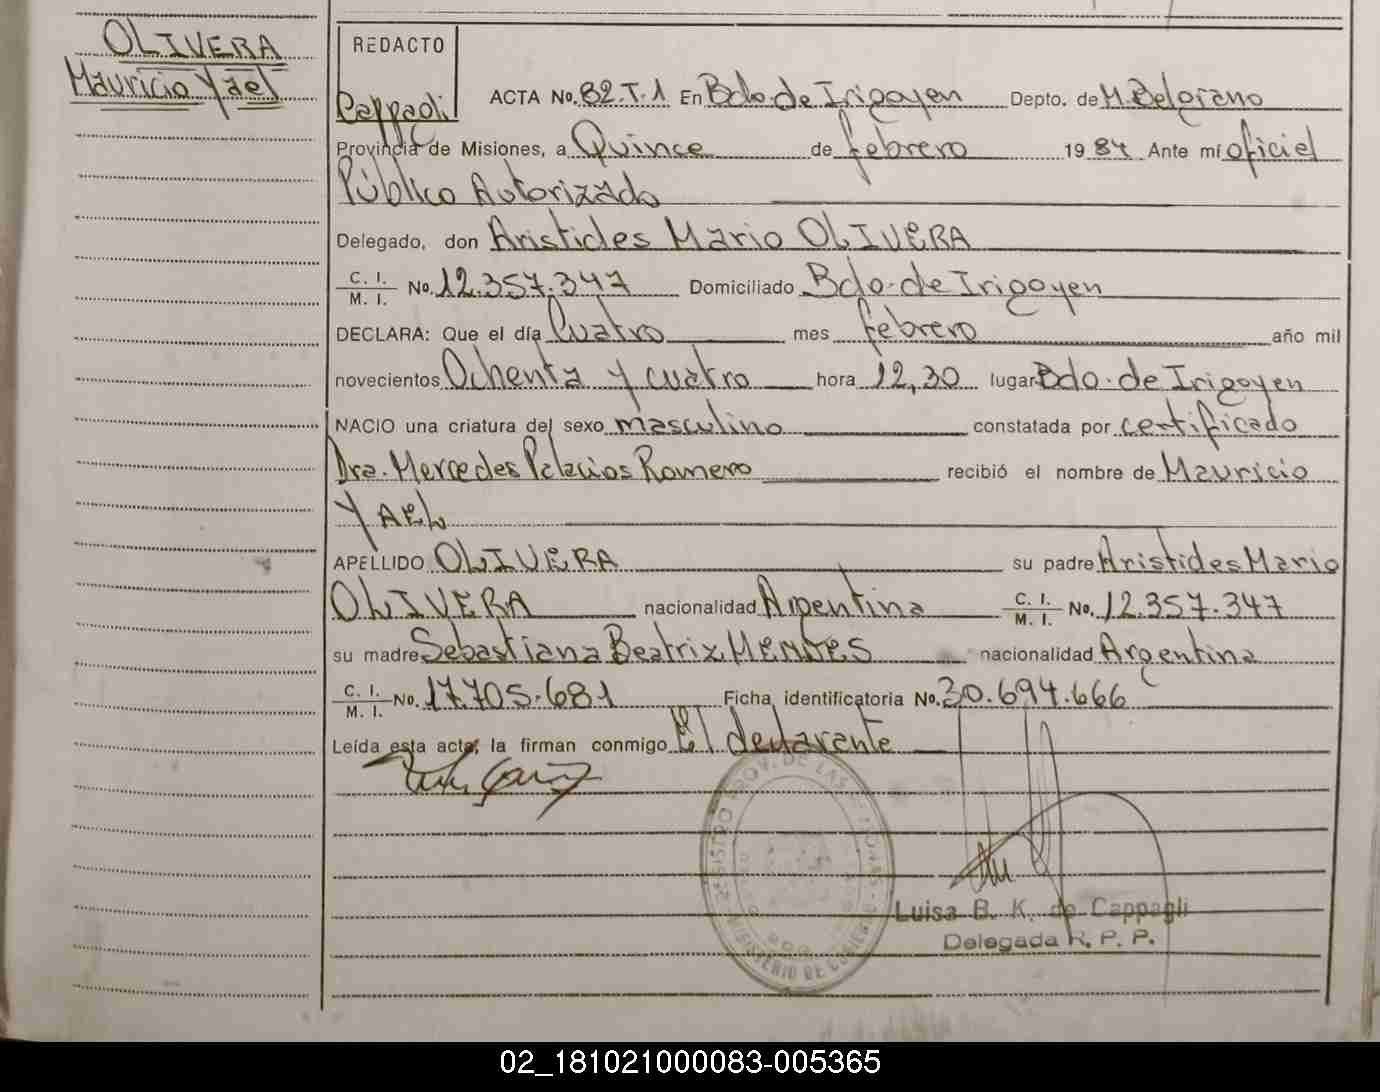 OLIVERA
Mauricio Yael
REDACTO
Cappagli
ACTA No. 82.T.1 En Bdo. de Irigoyen Depto. de M. Belgrano
Provincia de Misiones, a Quince de febrero 1984 Ante mí oficiel
Público Autorizado
Delegado, don Aristides Mario OLIVERA
C. I.
M. I. No. 12.357.347 Domiciliado Bdo. de Irigoyen
DECLARA: Que el día Cuatro mes febrero año mil
novecientos Ochenta y cuatro hora 12,30 lugar Bdo. de Irigoyen
NACIO una criatura del sexo masculino constatada por certificado
Dra. Mercedes Palacios Romero recibió el nombre de Mauricio
YAEL
APELLIDO OLIVERA su padre Aristides Mario
OLIVERA nacionalidad Argentina C. I.
M. I. No. 12.357.347
su madre Sebastiana Beatriz MENDES nacionalidad Argentina
C. I.
M. I. No. 17.705.681 Ficha identificatoria No. 30.694.666
Leída esta acta, la firman conmigo El declarante
Luisa B. K. de Cappagli
Delegada R. P. P.
02_181021000083-005365